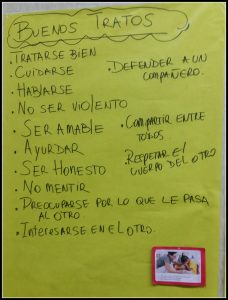 BUENOS TRATOS
• TRATARSE BIEN
• CUIDARSE
• HABLARSE
• NO SER VIOLENTO
• SER AMABLE
• AYUDAR
• SER HONESTO
• NO MENTIR
• PREOCUPARSE POR LO QUE LE PASA
AL OTRO
• INTERESARSE EN EL OTRO.
• DEFENDER A UN
COMPAÑERO.
• COMPARTIR ENTRE
TODOS.
• RESPETAR EL
CUERPO DEL OTRO